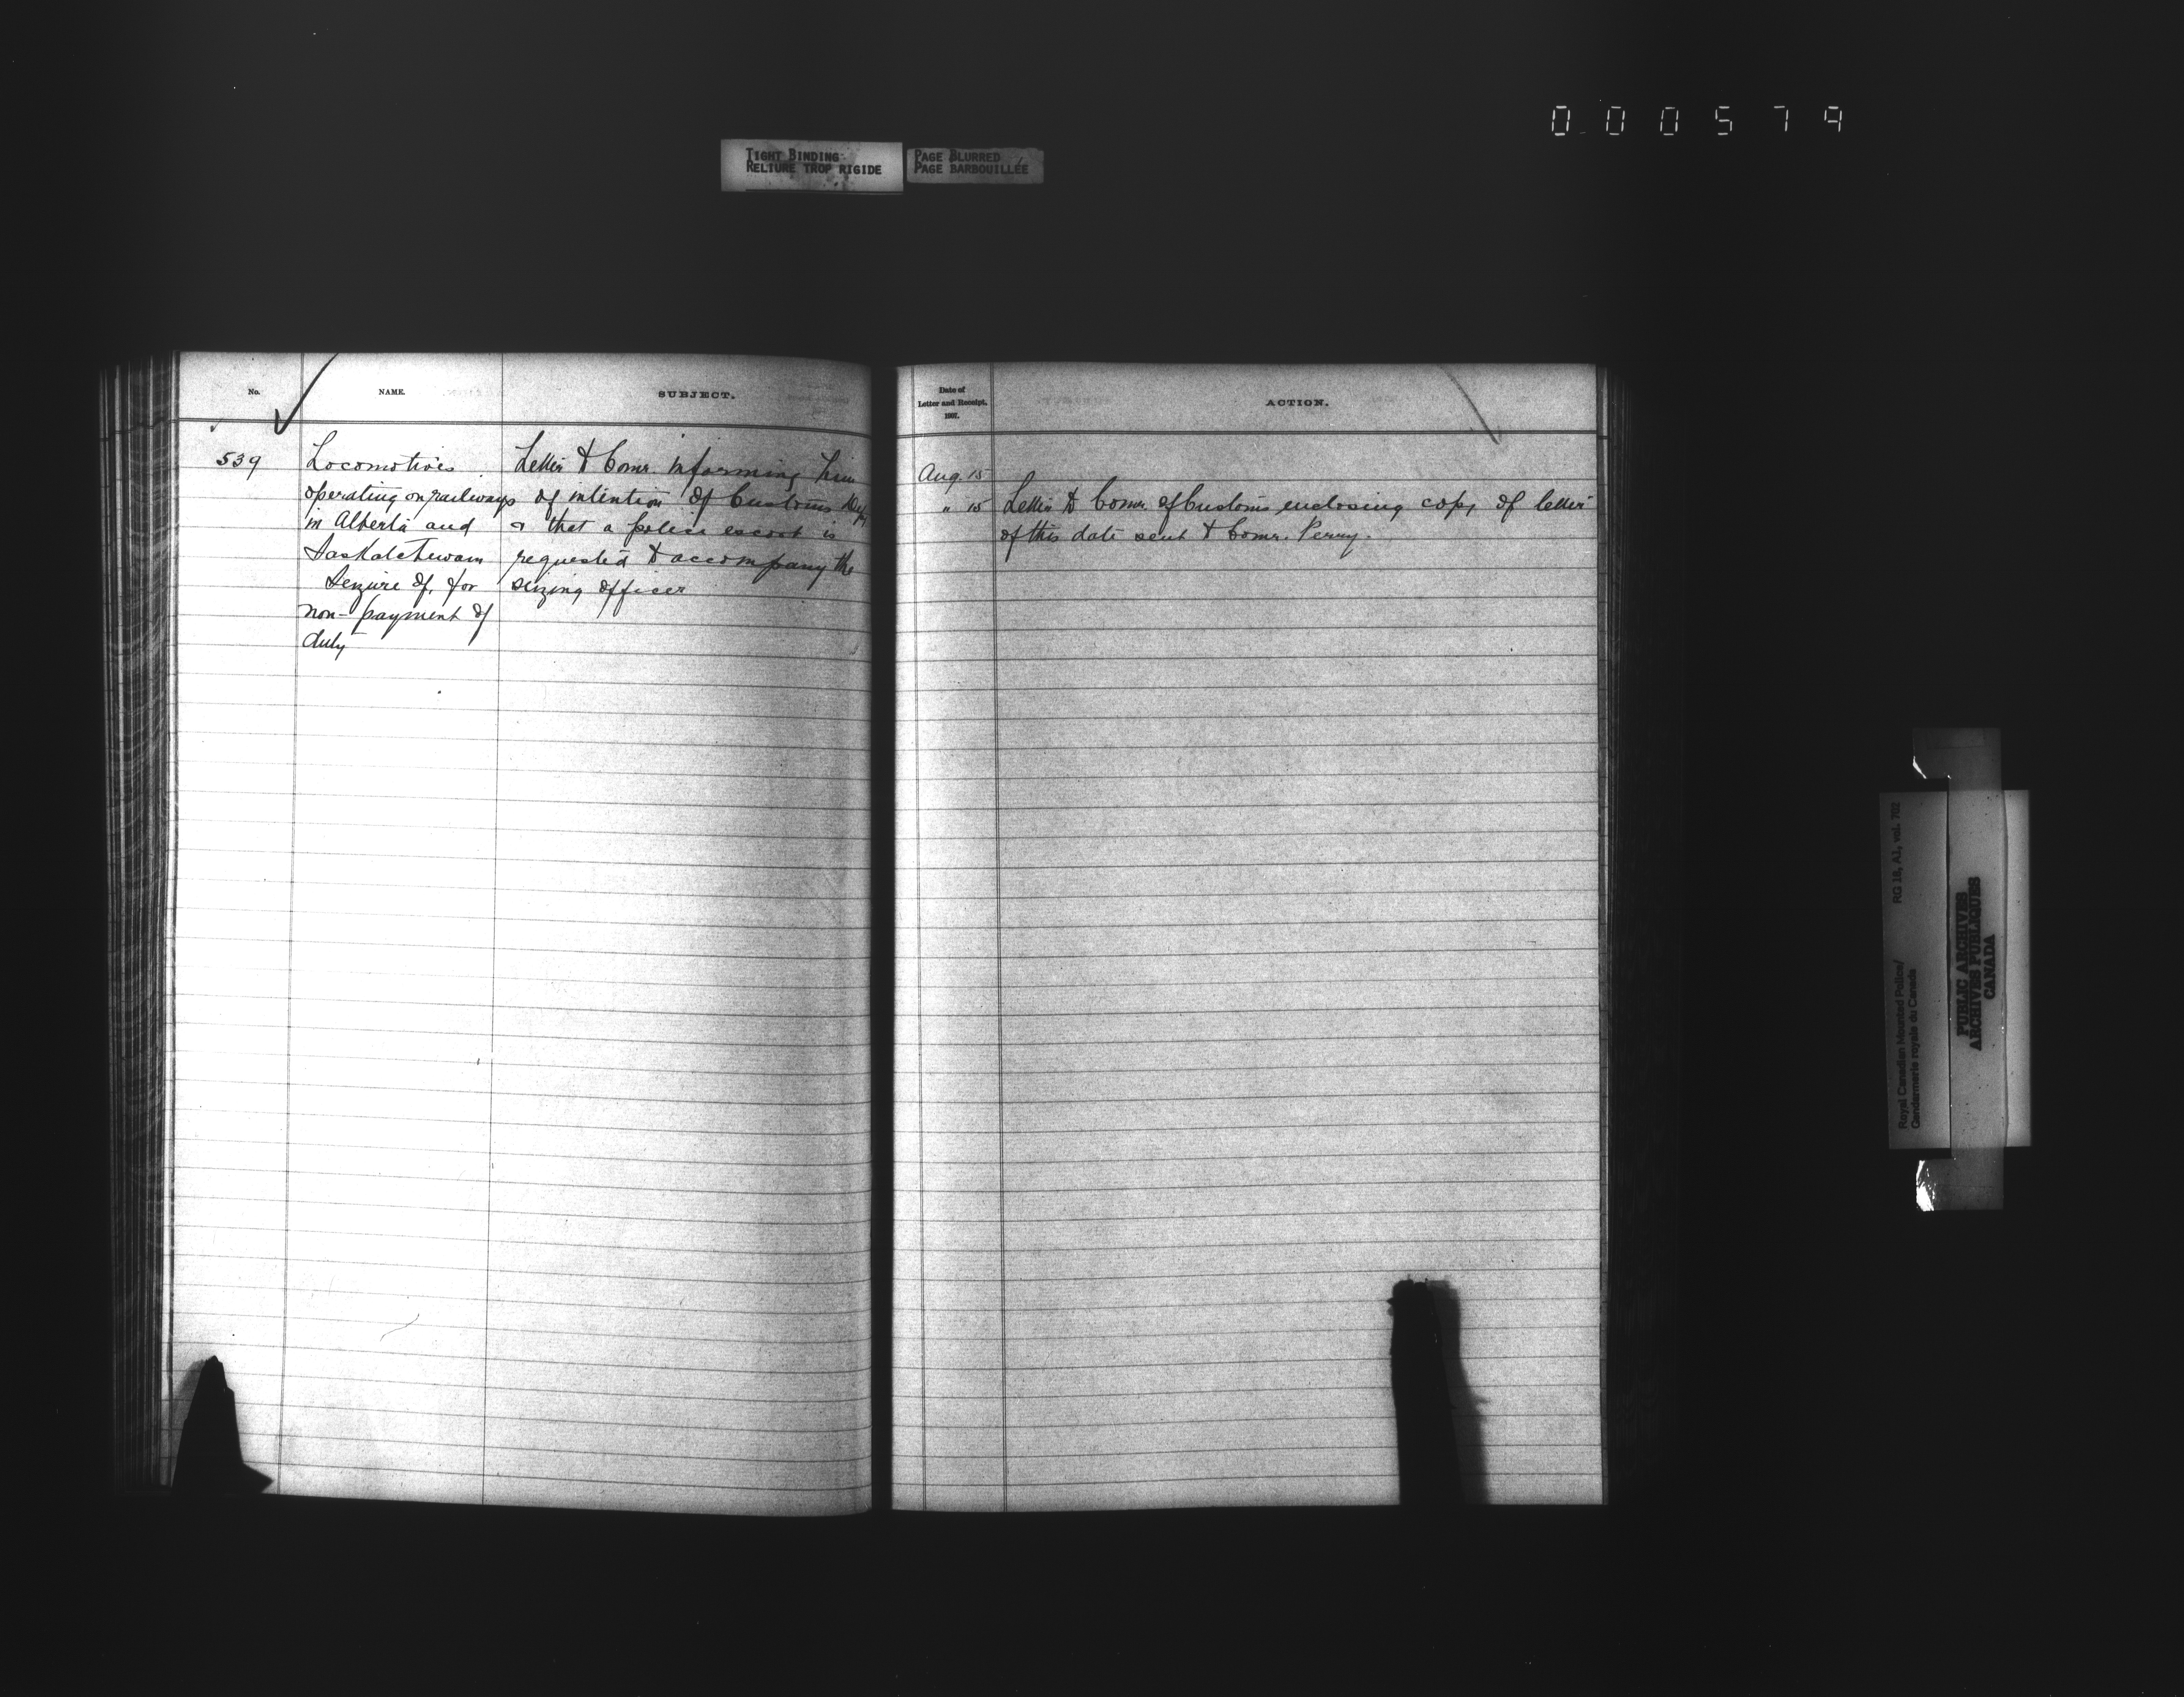 000579
TIGHT BINDING
RELIURE TROP RIGIDE
PAGE BLURRED
PAGE BARBOUILLÉE
No.
NAME.
SUBJECT.
539
Locomotives
operating on railways
in Alberta and
Saskatchewan
Seizure of, for
non-payment of
duty
Letter to Comr. informing him
of intention of Customs Dep.
& that a police escort is
requested to accompany the
seizing officer
Date of
Letter and Receipt,
1907.
ACTION.
Aug. 15
" 15 Letter to Comr. of Customs enclosing copy of letter
of this date sent to Comr. Perry.
Royal Canadian Mounted Police/ RG 18, A1, vol. 702
Gendarmerie royale du Canada
PUBLIC ARCHIVES
ARCHIVES PUBLIQUES
CANADA